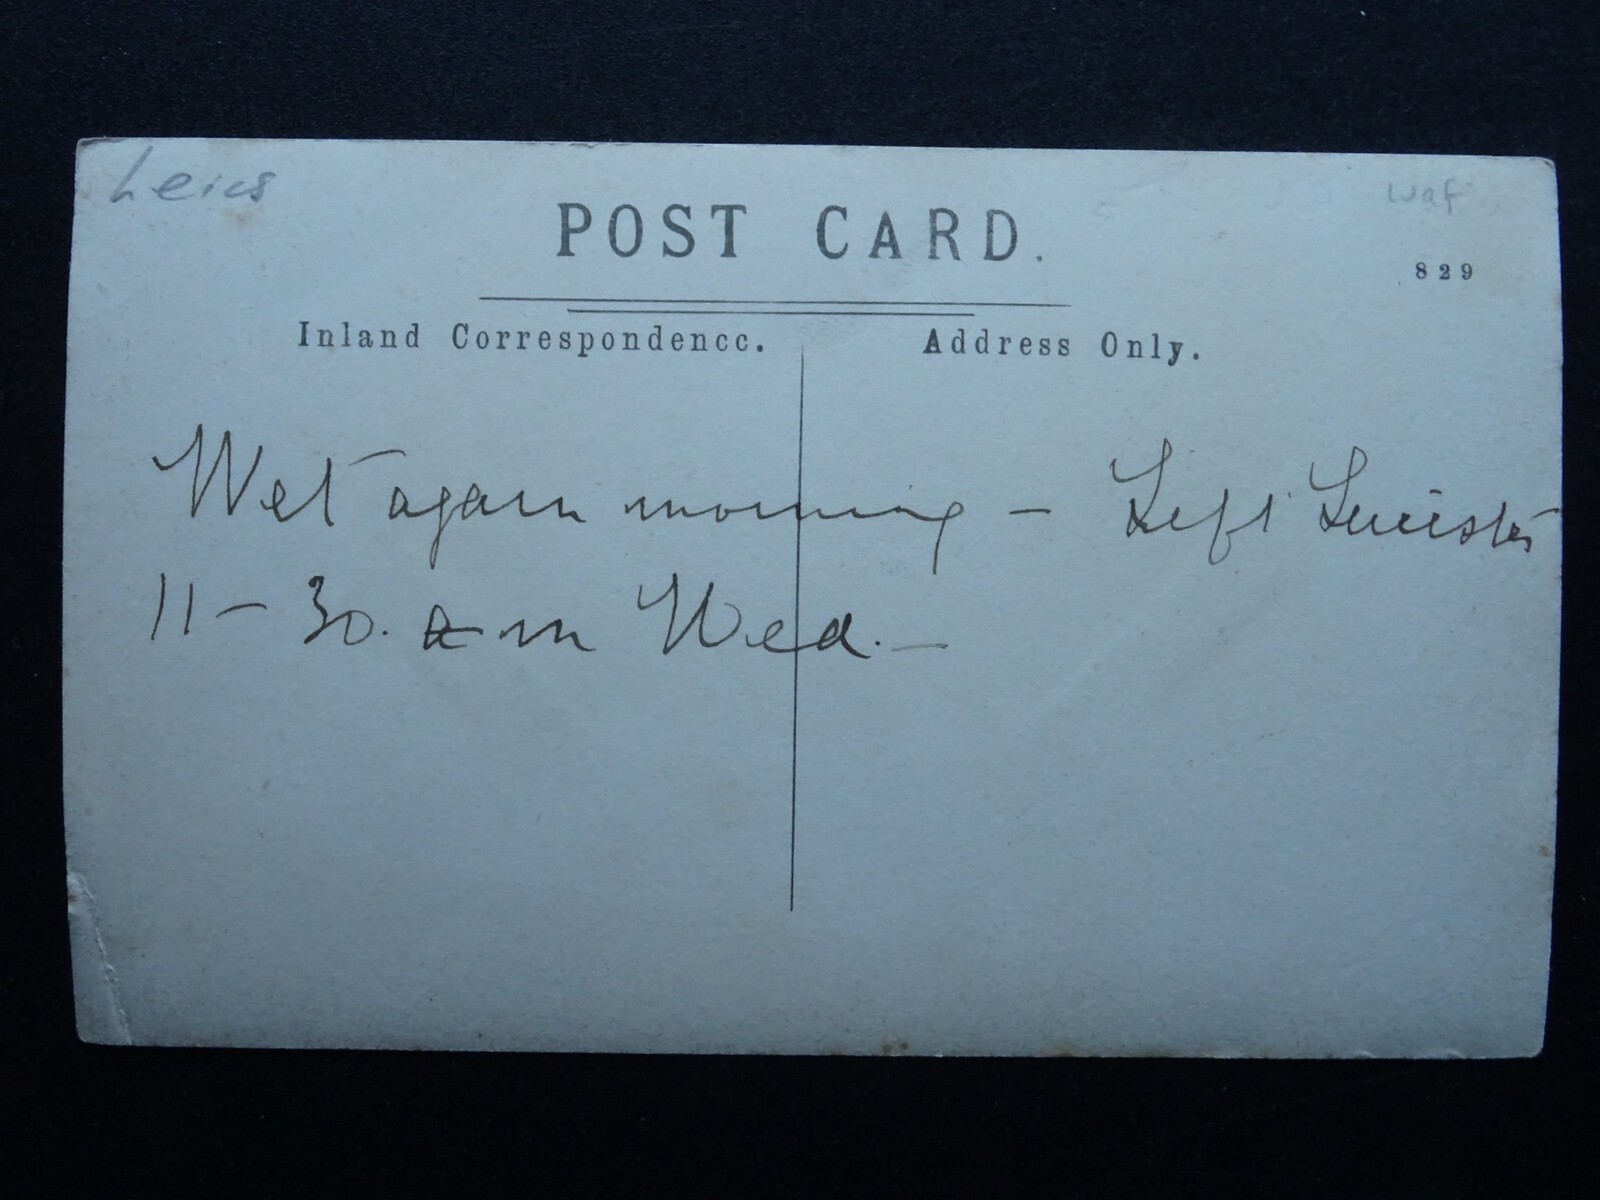 Leics
waf
POST CARD.
829
Inland Correspondencc.
Address Only.
Wet again morning – Left Leicester
11 – 30. a m Wed. –